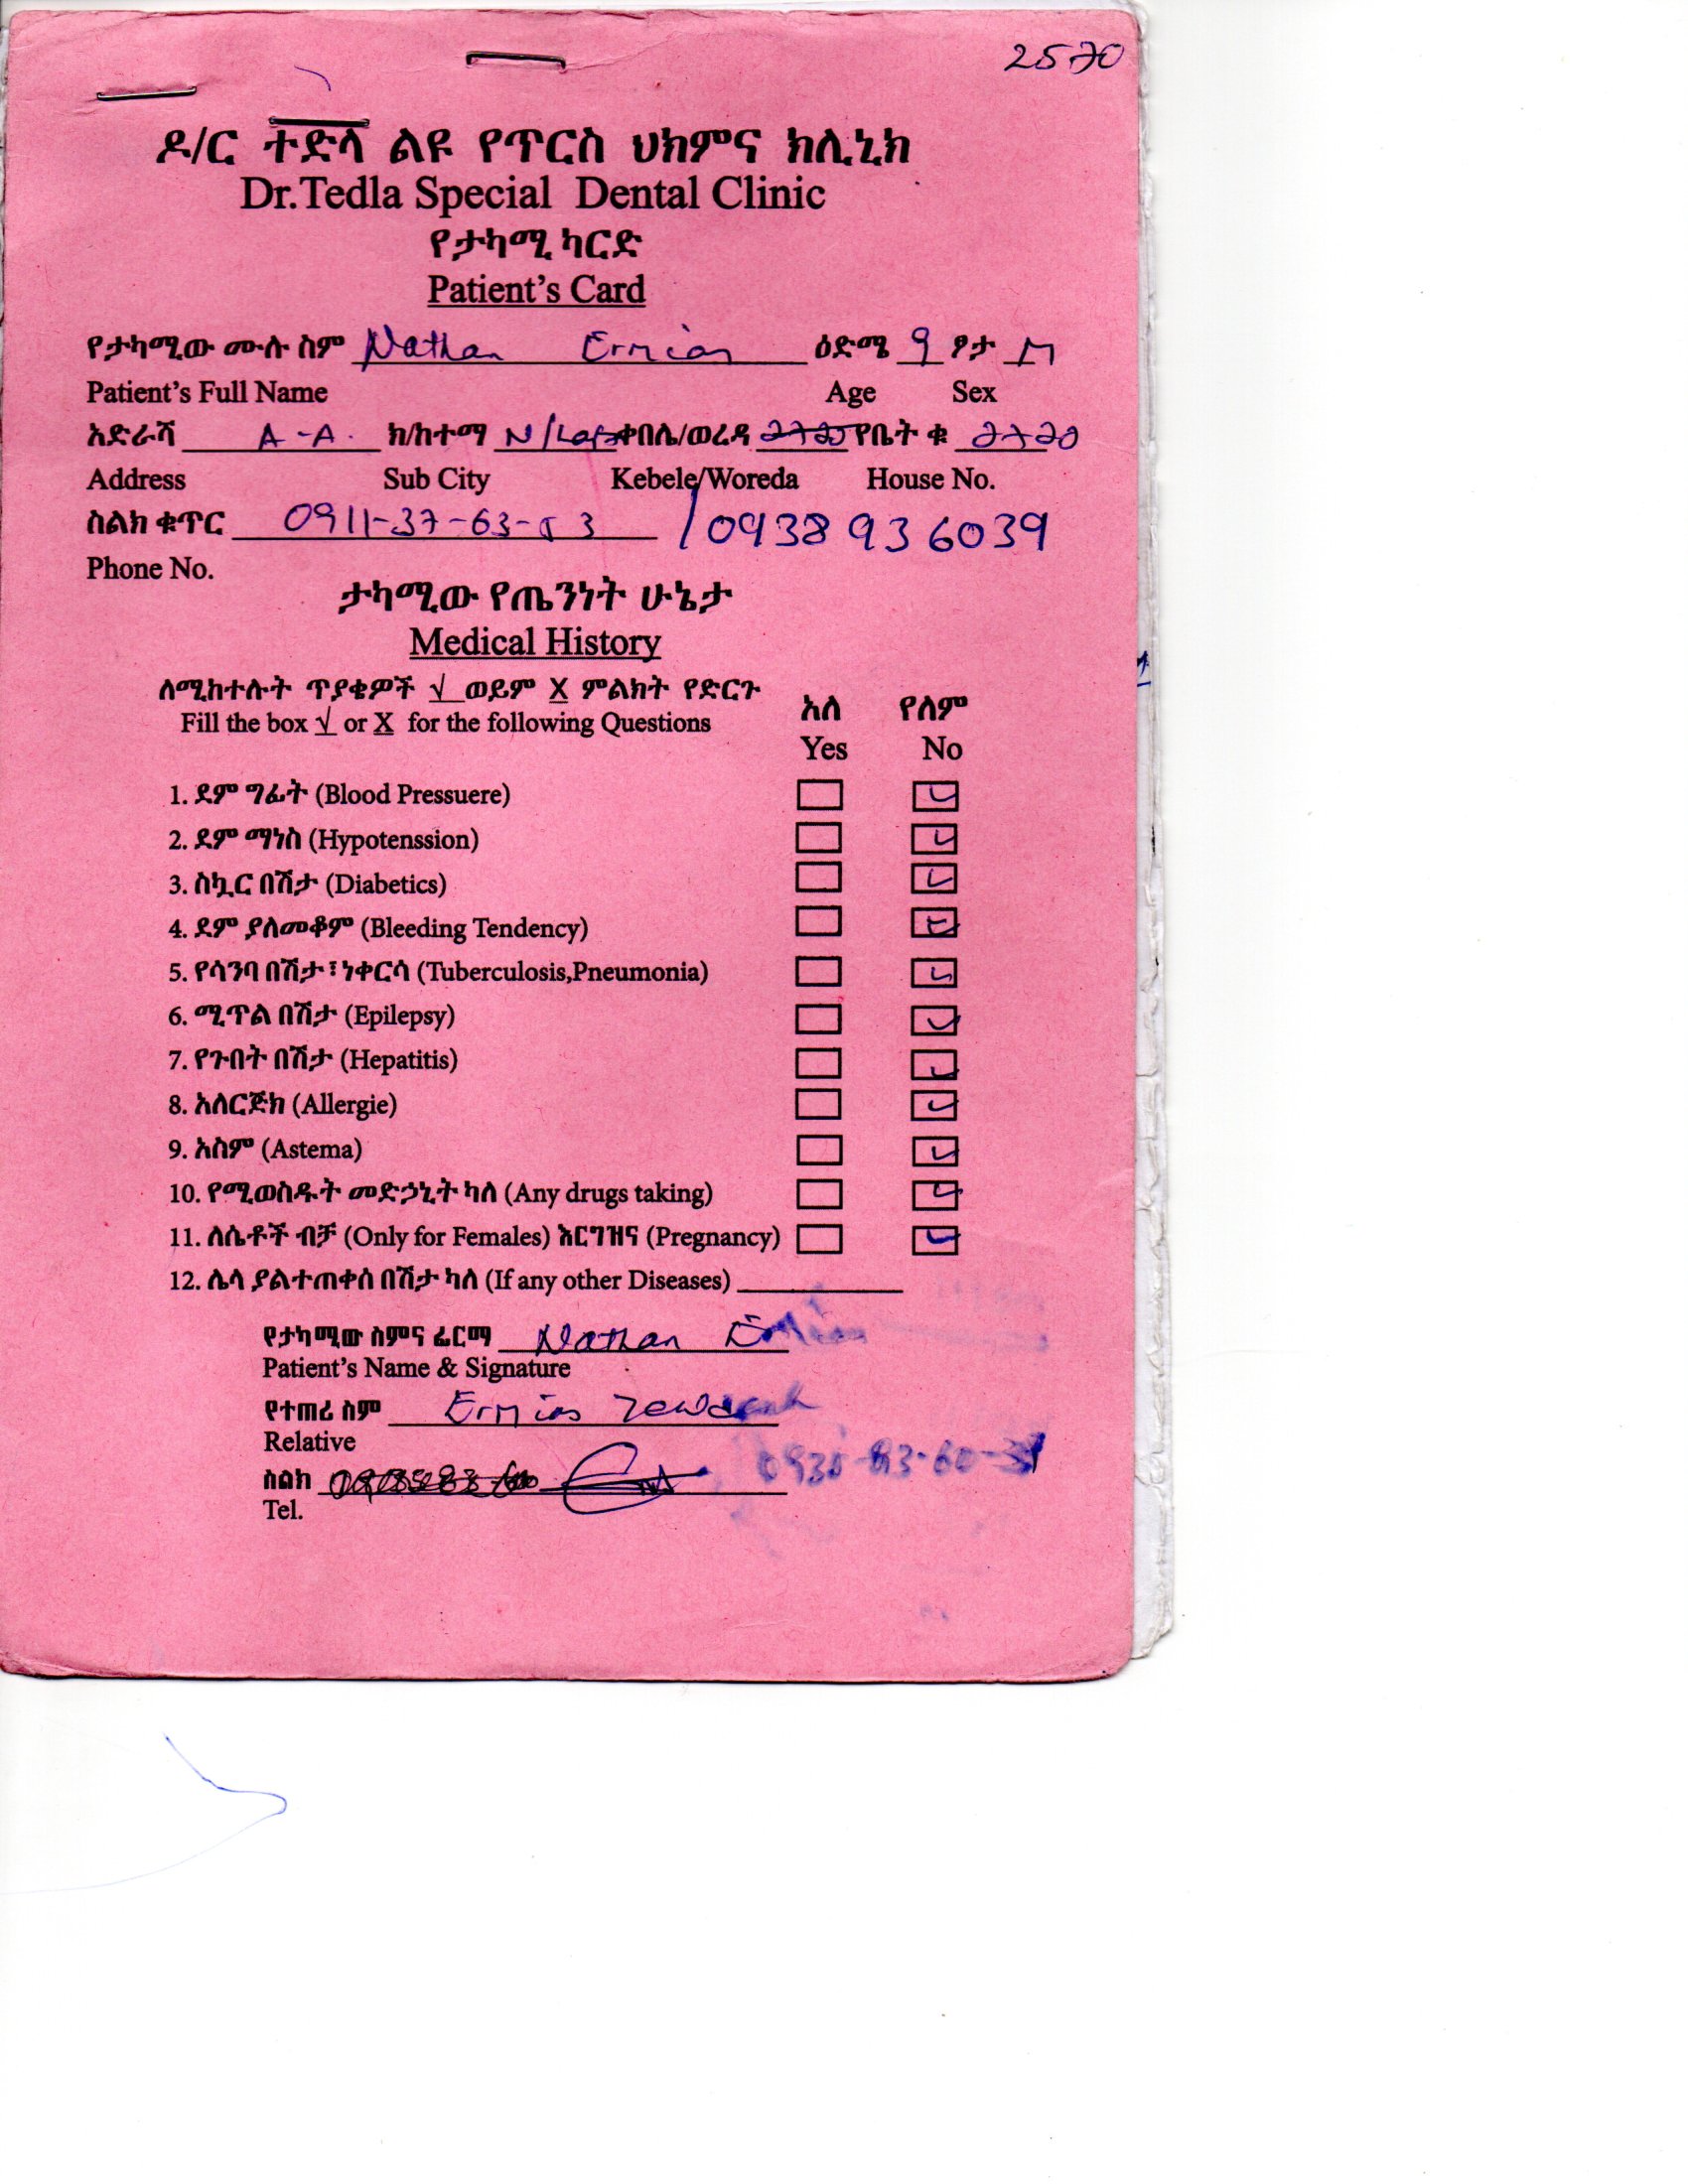 2570
ዶ/ር ተድላ ልዩ የጥርስ ህክምና ክሊኒክ
Dr.Tedla Special Dental Clinic
የታካሚ ካርድ
Patient's Card
የታካሚው ሙሉ ስም Nathan Ermias ዕድሜ 9 ፆታ M
Patient's Full Name Age Sex
አድራሻ A-A. ክ/ከተማ N/Laf ቀበሌ/ወረዳ የቤት ቁ 2720
Address Sub City Kebele/Woreda House No.
ስልክ ቁጥር 0911-37-63-53 /0938936039
Phone No.
ታካሚው የጤንነት ሁኔታ
Medical History
ለሚከተሉት ጥያቄዎች √ ወይም X ምልክት የድርጉ አለ የለም
Fill the box √ or X for the following Questions Yes No
1. ደም ግፊት (Blood Pressuere) ✓
2. ደም ማነስ (Hypotenssion) ✓
3. ስኳር በሽታ (Diabetics) ✓
4. ደም ያለመቆም (Bleeding Tendency) ✓
5. የሳንባ በሽታ፣ነቀርሳ (Tuberculosis,Pneumonia) ✓
6. ሚጥል በሽታ (Epilepsy) ✓
7. የጉበት በሽታ (Hepatitis) ✓
8. አለርጅክ (Allergie) ✓
9. አስም (Astema) ✓
10. የሚወስዱት መድኃኒት ካለ (Any drugs taking) ✓
11. ለሴቶች ብቻ (Only for Females) እርግዝና (Pregnancy) ✓
12. ሌላ ያልተጠቀሰ በሽታ ካለ (If any other Diseases)
የታካሚው ስምና ፊርማ Nathan Ermias
Patient's Name & Signature
የተጠሪ ስም Ermias
Relative
ስልክ
Tel.